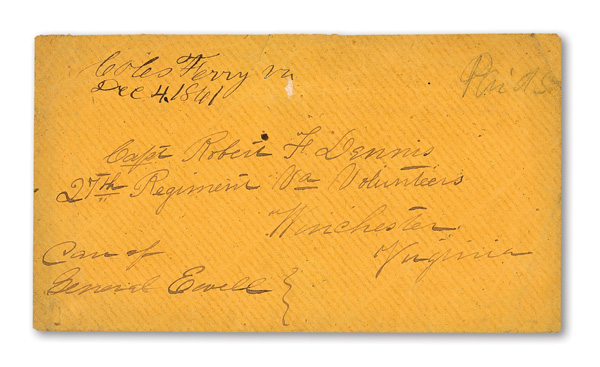 Coles Ferry va
Dec 4. 1861
Paid 5c
Capt Robert F Dennis
27th Regiment Va Volunteers
Winchester
Virginia
Care of
General Ewell